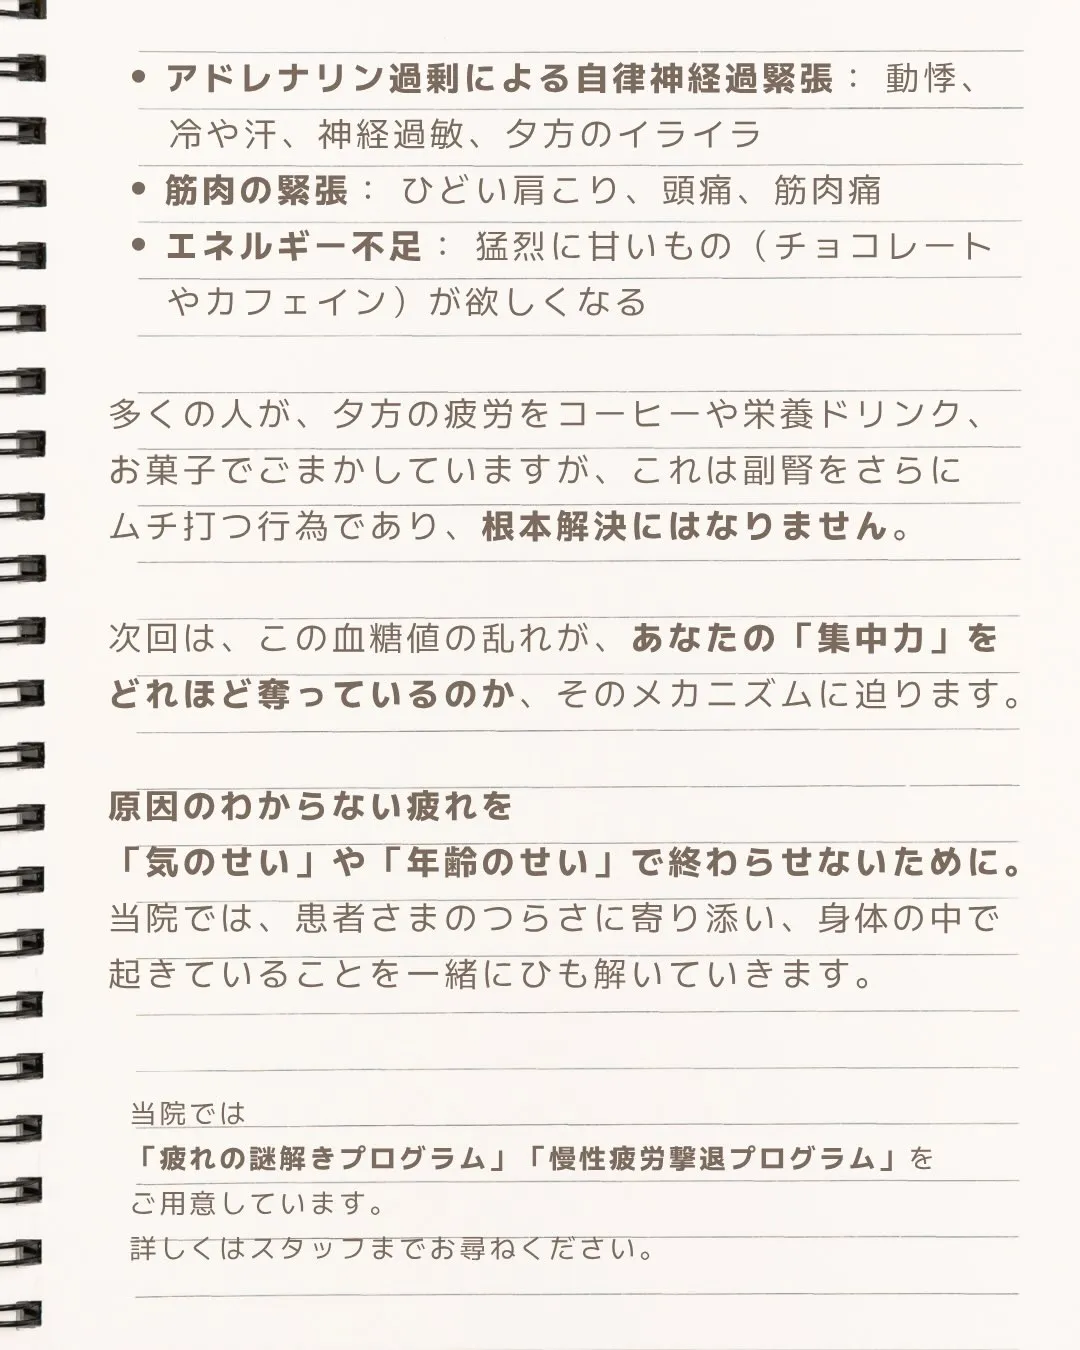 • アドレナリン過剰による自律神経過緊張： 動悸、
冷や汗、神経過敏、夕方のイライラ
• 筋肉の緊張： ひどい肩こり、頭痛、筋肉痛
• エネルギー不足： 猛烈に甘いもの（チョコレート
やカフェイン）が欲しくなる
多くの人が、夕方の疲労をコーヒーや栄養ドリンク、
お菓子でごまかしていますが、これは副腎をさらに
ムチ打つ行為であり、根本解決にはなりません。
次回は、この血糖値の乱れが、あなたの「集中力」を
どれほど奪っているのか、そのメカニズムに迫ります。
原因のわからない疲れを
「気のせい」や「年齢のせい」で終わらせないために。
当院では、患者さまのつらさに寄り添い、身体の中で
起きていることを一緒にひも解いていきます。
当院では
「疲れの謎解きプログラム」「慢性疲労撃退プログラム」を
ご用意しています。
詳しくはスタッフまでお尋ねください。